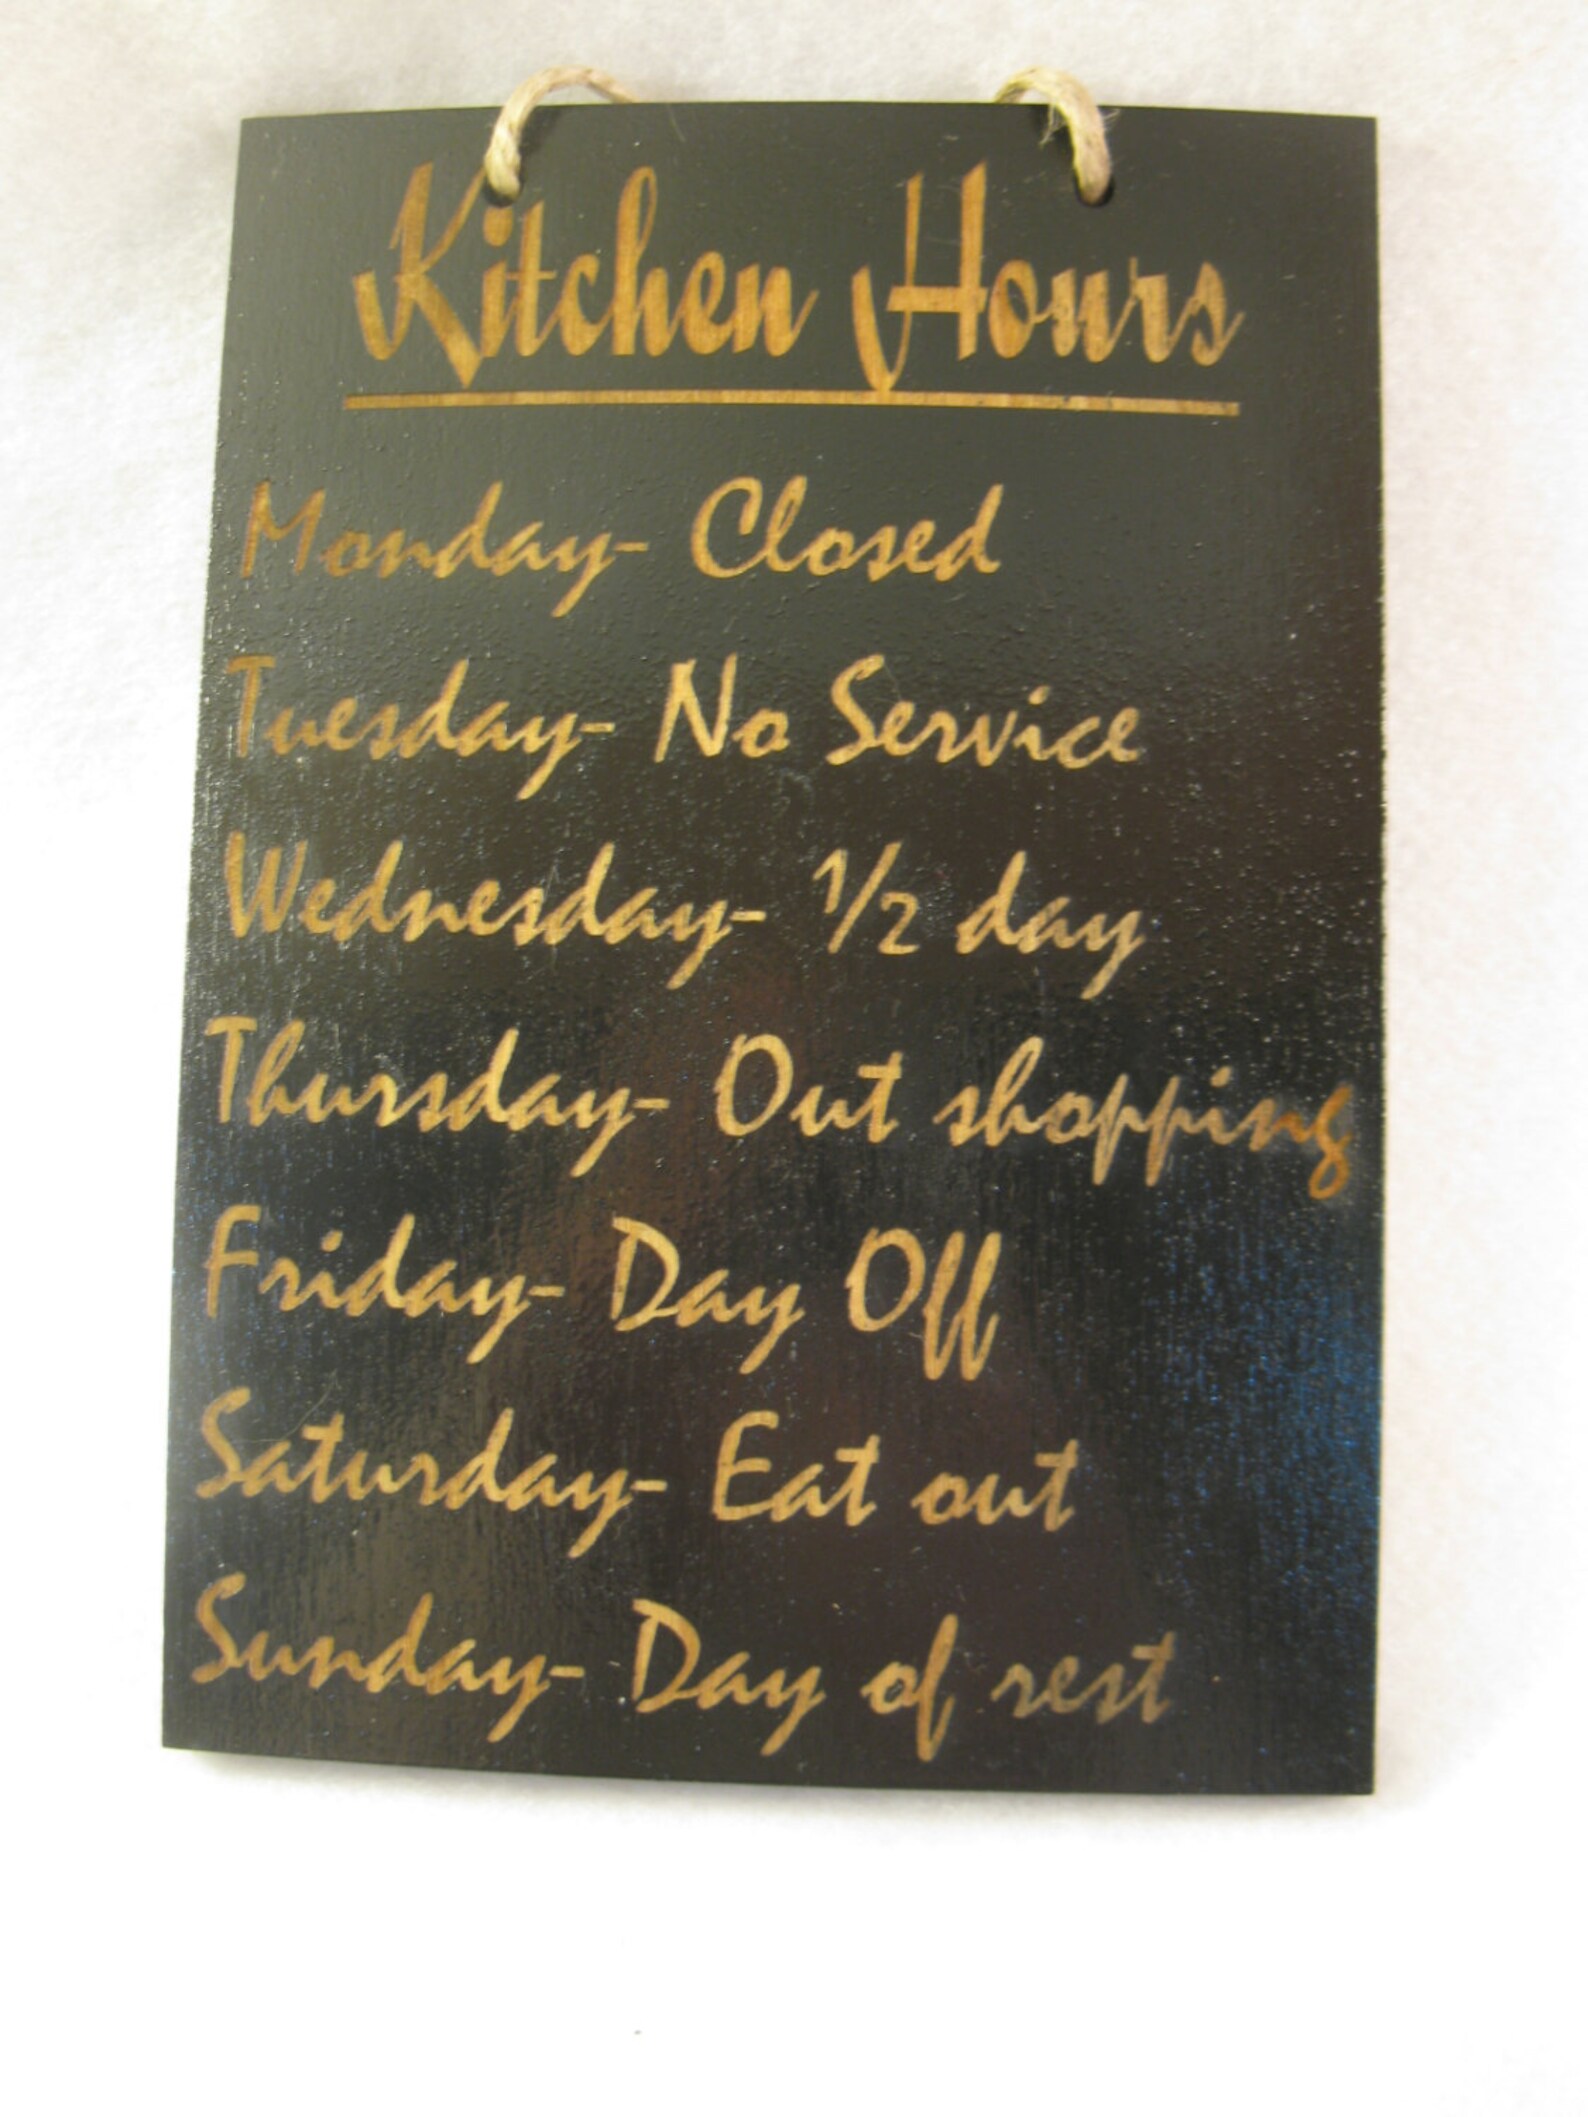 Kitchen Hours
Monday- Closed
Tuesday- No Service
Wednesday- 1/2 day
Thursday- Out shopping
Friday- Day Off
Saturday- Eat out
Sunday- Day of rest